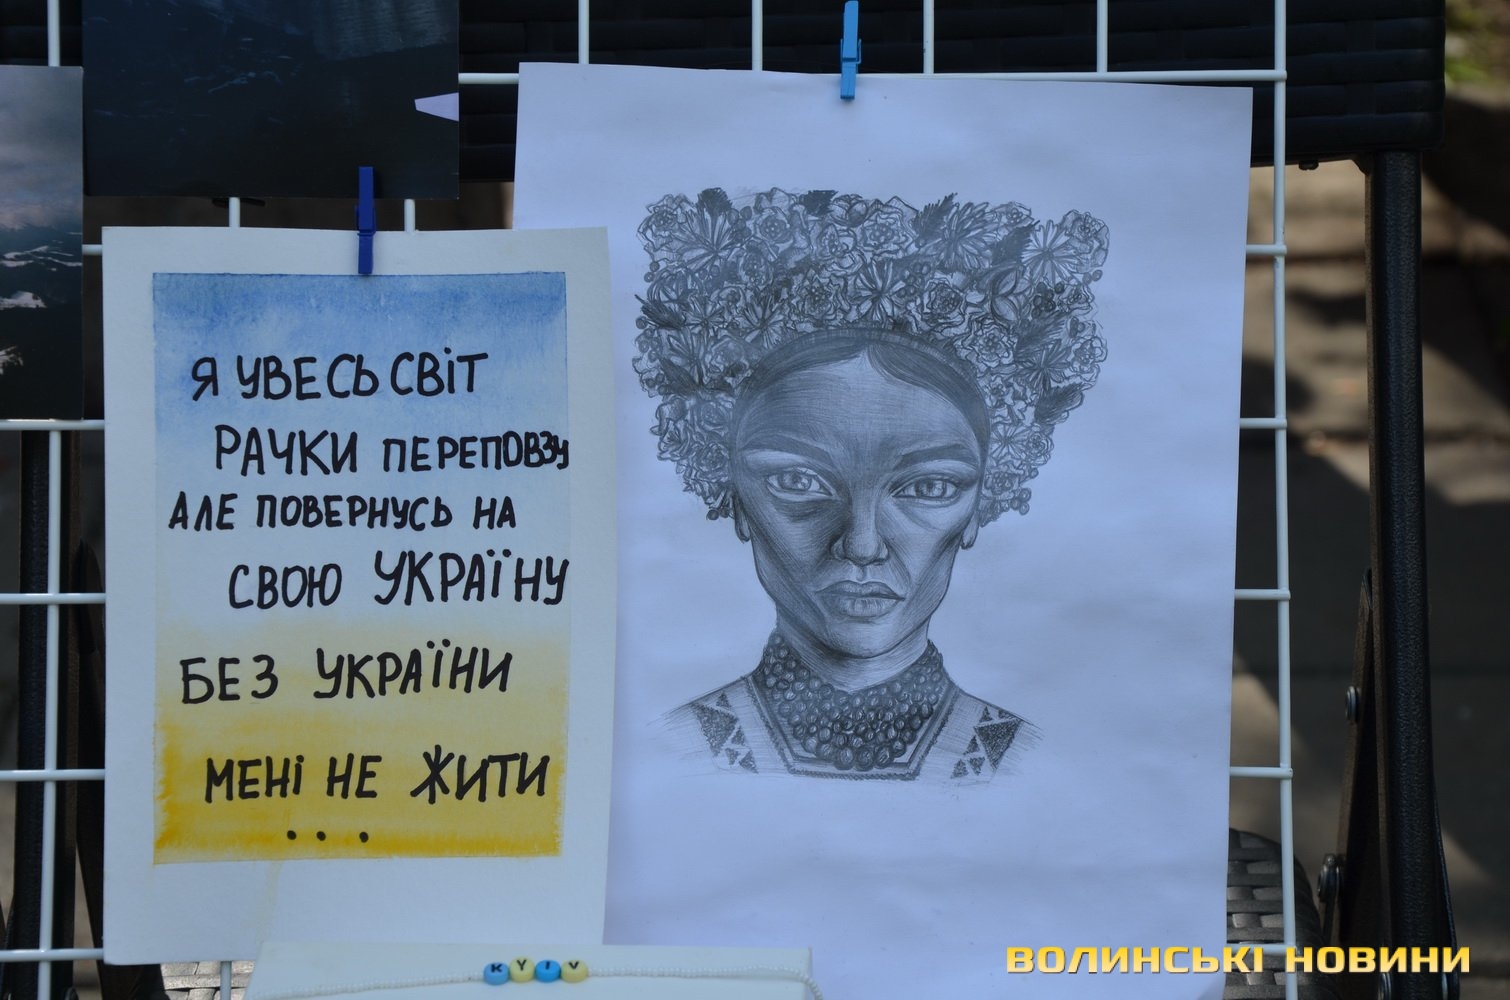 Я УВЕСЬ СВІТ
РАЧКИ ПЕРЕПОВЗУ
АЛЕ ПОВЕРНУСЬ НА
СВОЮ УКРАЇНУ
БЕЗ УКРАЇНИ
МЕНІ НЕ ЖИТИ
...
KYIV
ВОЛИНСЬКІ НОВИНИ